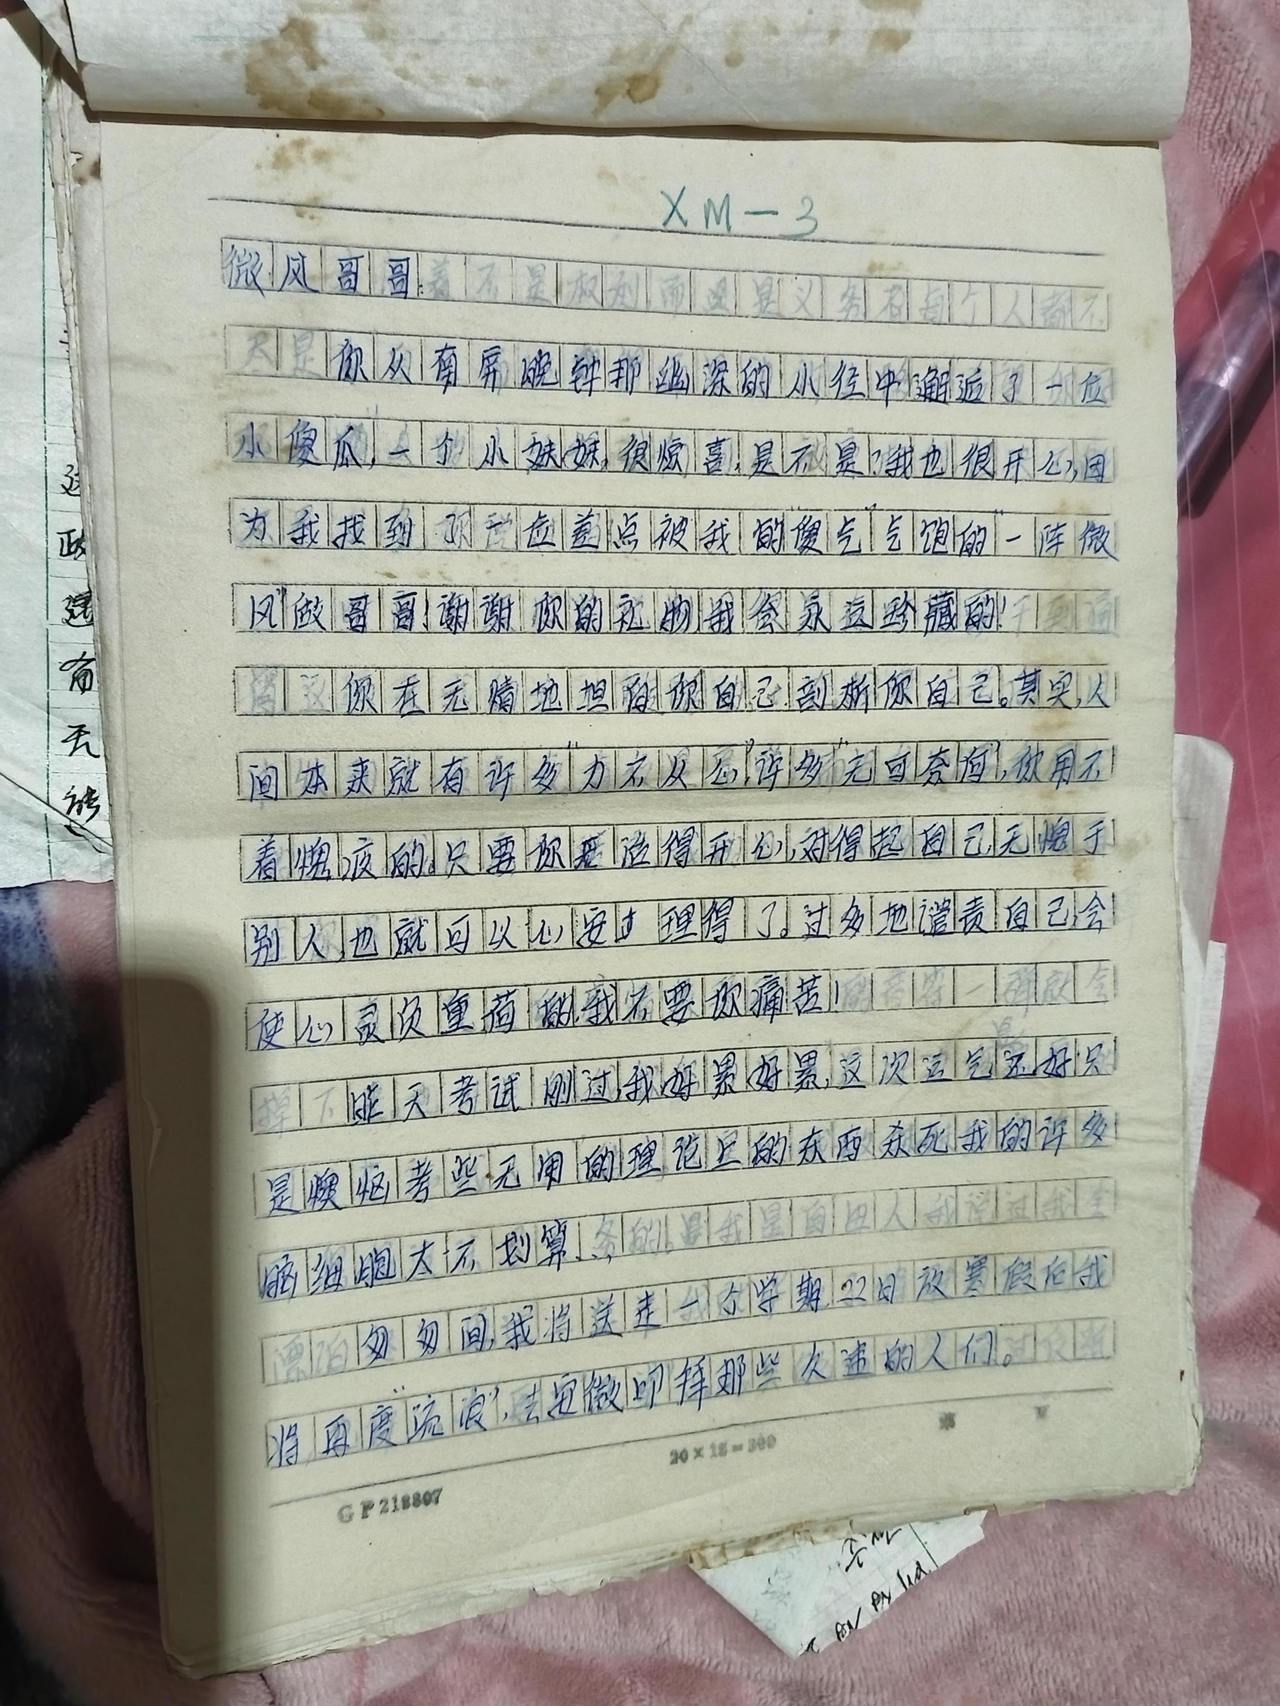 XM-3
微风哥哥：
你从南屏晚钟那幽深的小径中邂逅了一位
小傻瓜，一个小妹妹，很惊喜，是不是？我也很开心，因
为我找到了一位差点被我的“傻气”气饱的“一阵微
风”做哥哥！谢谢你的礼物我会永远珍藏的！
你在无情地坦白你自己剖析你自己。其实，人
间本来就有许多“力不从心”许多“无可奈何”，你用不
着愧疚的。只要你要活得开心，对得起自己，无愧于
别人，也就可以心安理得了。过多地谴责自己会
使心灵负重荷的，我不要你痛苦！
昨天考试刚过，我好累好累，这次运气还好只
是懊恼考些无用的理论上的东西杀死我的许多
脑细胞太不划算、
匆匆间，我将送走一个学期，22日放寒假后我
将再度“流浪”，去安徽叩拜那些久违的人们。
20×15=300
第 页
GP218807
政
有
无
能